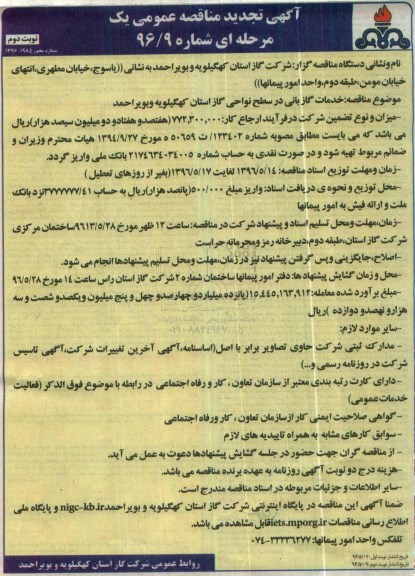 آگهی تجدید مناقصه عمومی یک
مرحله ای شماره ۹۶/۹
نوبت دوم
شماره مجوز ۱۳۹۶.۱۹۸۵
نام ونشانی دستگاه مناقصه گزار: شرکت گاز استان کهگیلویه و بویر احمد به نشانی ((یاسوج، خیابان مطهری، انتهای
خیابان مومن، طبقه دوم، واحد امور پیمانها))
موضوع مناقصه: خدمات گازبانی در سطح نواحی گاز استان کهگیلویه وبویراحمد
-میزان و نوع تضمین شرکت در فرآیند ارجاع کار: ۷۷۲,۳۰۰,۰۰۰ (هفتصدو هفتادو دو میلیون سیصد هزار) ریال
می باشد که می بایست مطابق مصوبه شماره ۱۲۳۴۰۲/ ت ۵۰۶۵۹ ه مورخ ۱۳۹۴/۹/۲۷ هیات محترم وزیران و
ضمائم مربوط تهیه شود و در صورت نقدی به حساب شماره ۲۱۷۴۶۳۴۰۳۴۰۰۵ بانک ملی واریز گردد.
-زمان ومهلت توزیع اسناد مناقصه: ۱۳۹۶/۵/۱۴ لغایت ۱۳۹۶/۵/۱۷ (بغیر از روزهای تعطیل)
-محل توزیع و نحوه ی دریافت اسناد: واریز مبلغ ۵۰۰/۰۰۰ (پانصد هزار) ریال به حساب ۳۷۷۷۷۷۷/۴۱ نزد بانک
ملت و ارائه فیش به امور پیمانها
-زمان، مهلت ومحل تسلیم اسناد و پیشنهاد شرکت در مناقصه: ساعت ۱۲ ظهر مورخ ۹۶۱۳/۵/۲۸ ساختمان مرکزی
شرکت گاز استان، طبقه دوم، دبیر خانه رمز ومحرمانه حراست
-اصلاح، جایگزینی و پس گرفتن پیشنهاد نیز در زمان، مهلت ومحل تسلیم پیشنهادها انجام می شود.
-محل و زمان گشایش پیشنهاد ها: دفتر امور پیمانها ساختمان شماره ۲ شرکت گاز استان راس ساعت ۱۴ مورخ ۹۶/۵/۲۸
-مبلغ بر آورد شده معامله: ۱۵,۴۴۵,۱۶۳,۹۱۲ (پانزده میلیاردو چهارصدو چهل و پنج میلیون ویکصدو شصت و سه
هزارو نهصدو دوازده) ریال
-سایر موارد لازم:
- مدارک ثبتی شرکت حاوی تصاویر برابر با اصل (اساسنامه، آگهی آخرین تغییرات شرکت، آگهی تاسیس
شرکت در روزنامه رسمی و...)
-دارای کارت رتبه بندی معتبر از سازمان تعاون، کار و رفاه اجتماعی در رابطه با موضوع فوق الذکر (فعالیت
خدمات عمومی)
-گواهی صلاحیت ایمنی کار از سازمان تعاون، کار ورفاه اجتماعی
- سوابق کارهای مشابه به همراه تاییدیه های لازم
- از مناقصه گران جهت حضور در جلسه گشایش پیشنهادها دعوت به عمل می آید.
-هزینه درج دو نوبت آگهی روزنامه به عهده برنده مناقصه می باشد.
-سایر اطلاعات و جزئیات مربوطه در اسناد مناقصه مندرج است.
ضمنا آگهی این مناقصه در پایگاه اینترنتی شرکت گاز استان کهگیلویه و بویراحمد nigc-kb.ir و پایگاه ملی
اطلاع رسانی مناقصات iets.mporg.ir قابل مشاهده می باشد.
تلفکس واحد امور پیمانها: ۳۳۳۳۶۲۷۷-۰۷۴
تاریخ انتشار نوبت اول: ۹۶/۵/۰۷
تاریخ انتشار نوبت دوم: ۹۶/۵/۰۹
روابط عمومی شرکت گاز استان کهگیلویه و بویر احمد